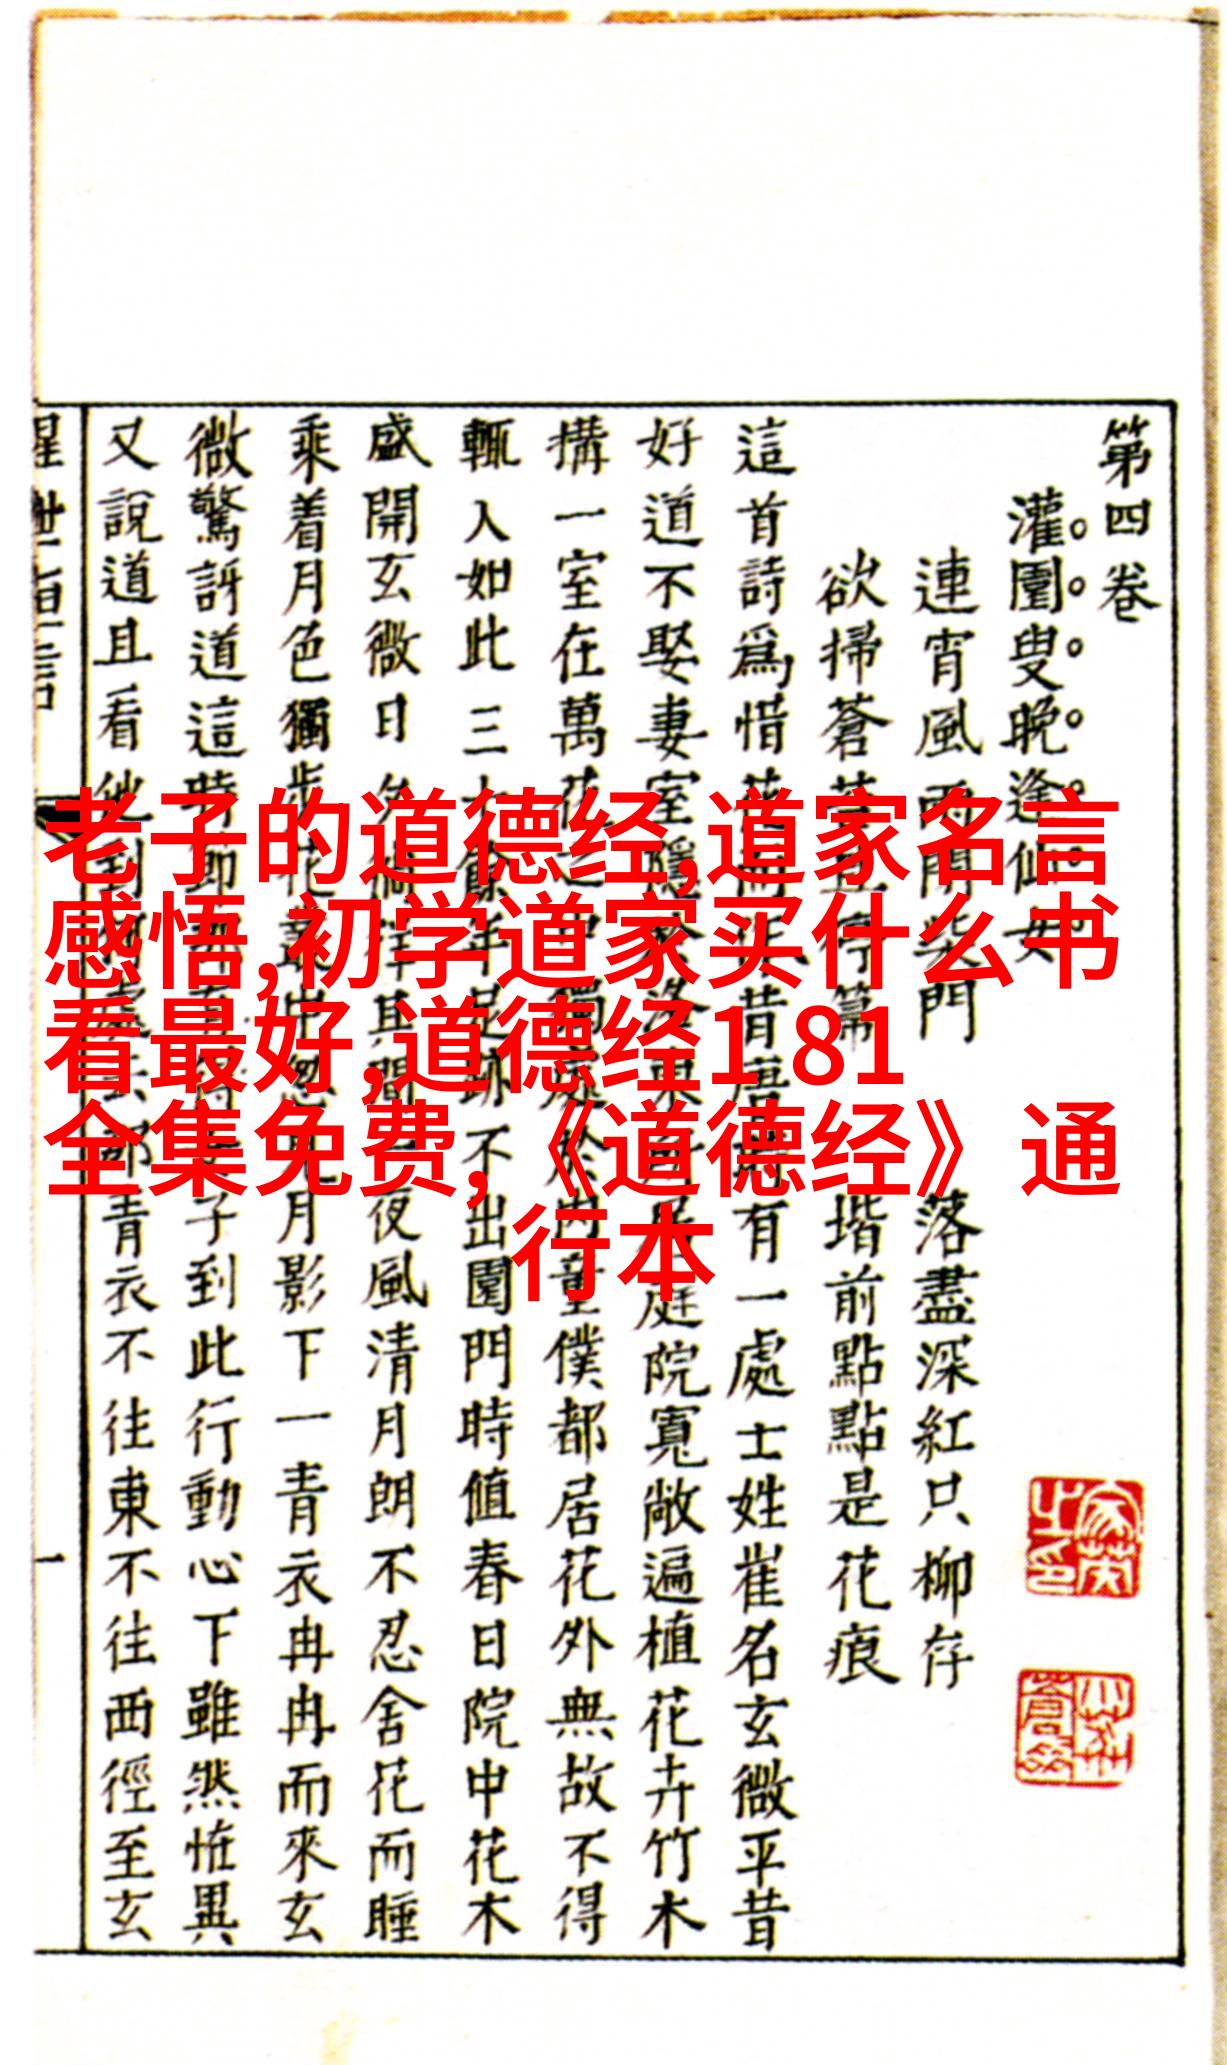 老子的道德经,道家名言
感悟,初学道家买什么书
看最好,道德经1 81
全集免费,《道德经》通
行本
第四卷
灌園叟晚逢仙女
連宵風雨閉柴門 落盡深紅只柳存
欲掃蒼苔 階前點點是花痕
這首詩爲惜花 昔 有一處士姓崔名玄微平昔
好道不娶妻室隱 庭院寬敞遍植花卉竹木
搆一室在萬花之 童僕都居花外無故不得
輒入如此三十餘年足跡不出園門時值春日院中花木
盛開玄微日夕徜徉其間 夜風清月朗不忍舍花而睡
乘着月色獨步花叢 月影下一青衣冉冉而來玄
微驚訝道這時節 子到此行動心下雖然怪異
又說道且看他到 青衣不往東不往西徑至玄